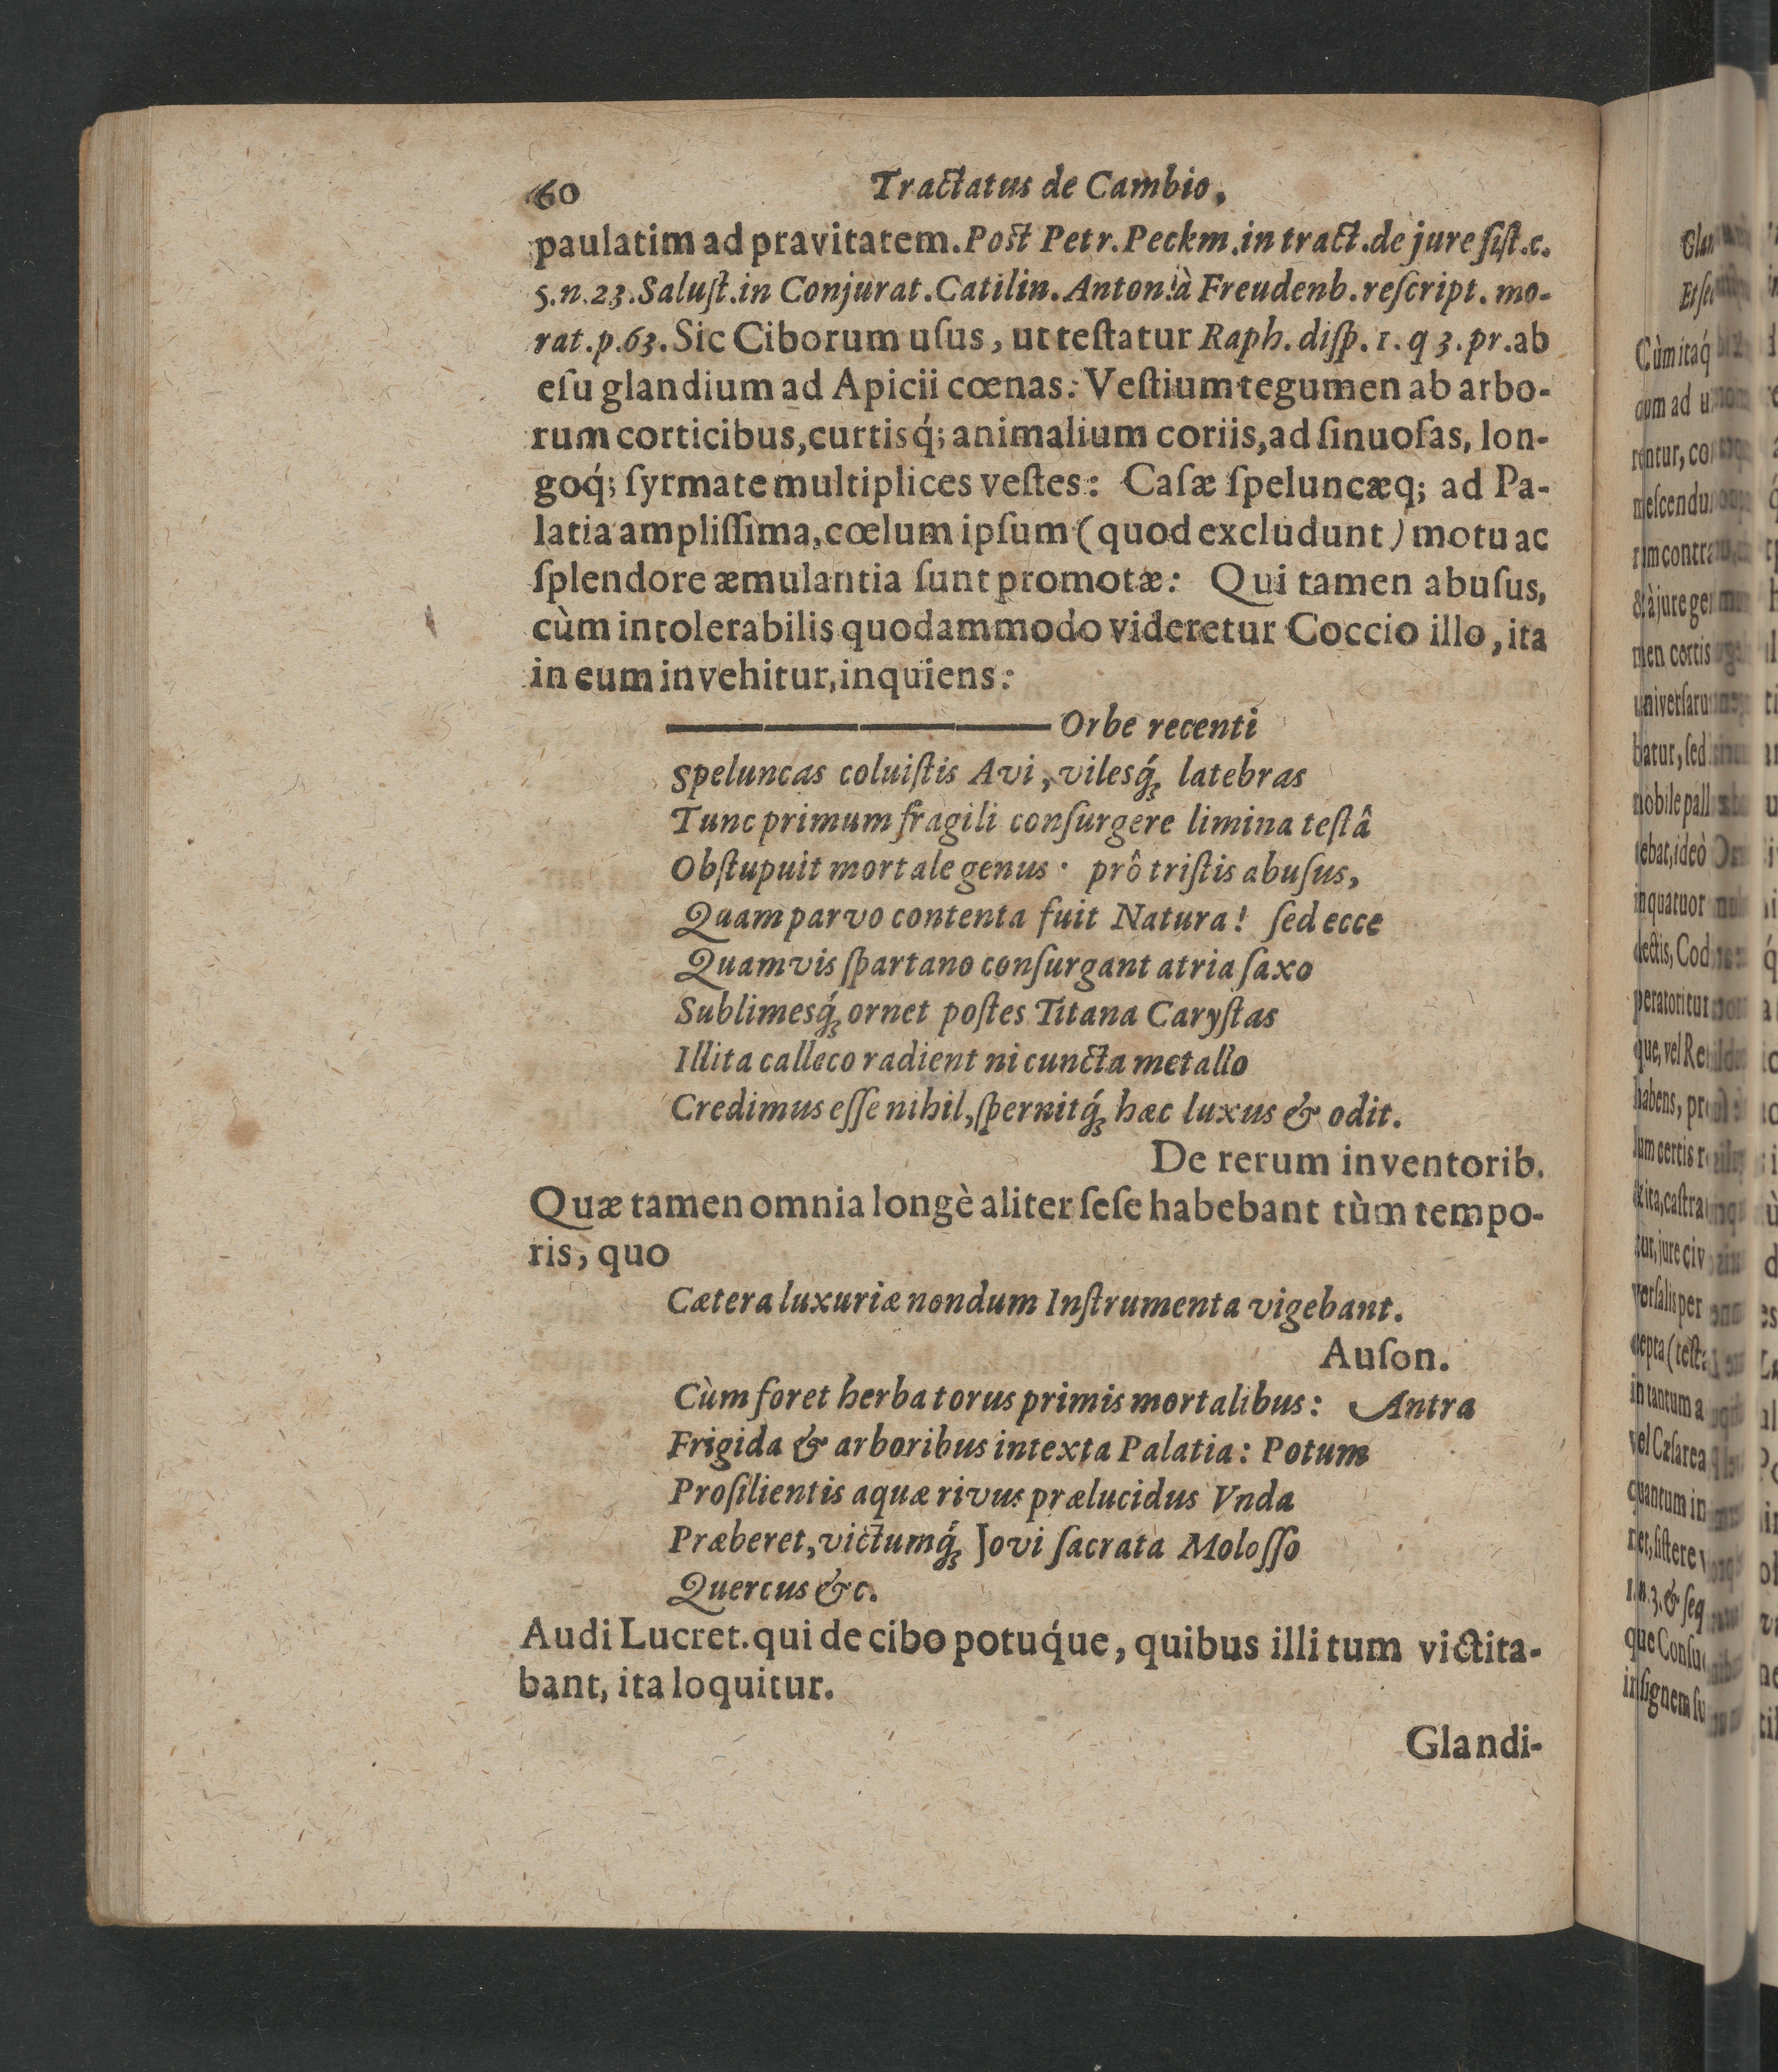 60 Tractatus de Cambio.
paulatim ad pravitatem. Post Petr. Peckm. in tract. de jure ſiſt. c.
5. n. 23. Saluſt. in Conjurat. Catilin. Anton. à Freudenb. reſcript. mo-
rat. p. 63. Sic Ciborum uſus, ut teſtatur Raph. diſp. 1. q 3. pr. ab
eſu glandium ad Apicii cœnas: Veſtium tegumen ab arbo-
rum corticibus, curtisq́; animalium coriis, ad ſinuoſas, lon-
goq́; ſyrmate multiplices veſtes: Caſæ ſpeluncæq; ad Pa-
latia ampliſſima, cœlum ipſum (quod excludunt) motu ac
ſplendore æmulantia ſunt promotæ: Qui tamen abuſus,
cùm intolerabilis quodammodo videretur Coccio illo, ita
in eum invehitur, inquiens:
———— Orbe recenti
Speluncas coluiſtis Avi, vilesq́; latebras
Tunc primum fragili conſurgere limina teſtâ
Obſtupuit mortale genus · prô triſtis abuſus,
Quam parvo contenta fuit Natura! ſed ecce
Quamvis ſpartano conſurgant atria ſaxo
Sublimesq́; ornet poſtes Titana Caryſtas
Illita calleco radient ni cuncta metallo
Credimus eſſe nihil, ſpernitq́; hæc luxus & odit.
De rerum inventorib.
Quæ tamen omnia longè aliter ſeſe habebant tùm tempo-
ris, quo
Cætera luxuriæ nondum Inſtrumenta vigebant.
Auſon.
Cùm foret herba torus primis mortalibus: Antra
Frigida & arboribus intexta Palatia: Potum
Proſilientis aquæ rivus prælucidus Vnda
Præberet, victumq́; Jovi ſacrata Moloſſo
Quercus &c.
Audi Lucret. qui de cibo potuq́ue, quibus illi tum victita-
bant, ita loquitur.
Glandi-